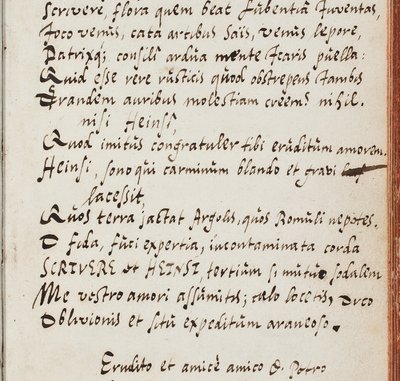 Scrivere, flora quem beat Lubentia Iuventas,
Ioco venus, cata artibus Sais, venus lepore,
Patrixq; consili ardua mente Icaris puella:
Quid esse rere rusticis quod obstrepens Iambis
Grandem auribus molestiam creem? nihil.
nisi Heinsi,
Quod imitus congratuler tibi eruditum amorem.
Heinsi, sono qui carminum blando et gravi
lacessit,
Quos terra jactat Argolis, quos Romuli nepotes.
O fida, fuci expertia, incontaminata corda
SCRIVERE et HEINSI, tertium si mutuo sodalem
Me vestro amori assumitis; calo locetis, Orco
Oblivionis et situ expeditum araneoso.
Erudito et amicè amico D. Petro